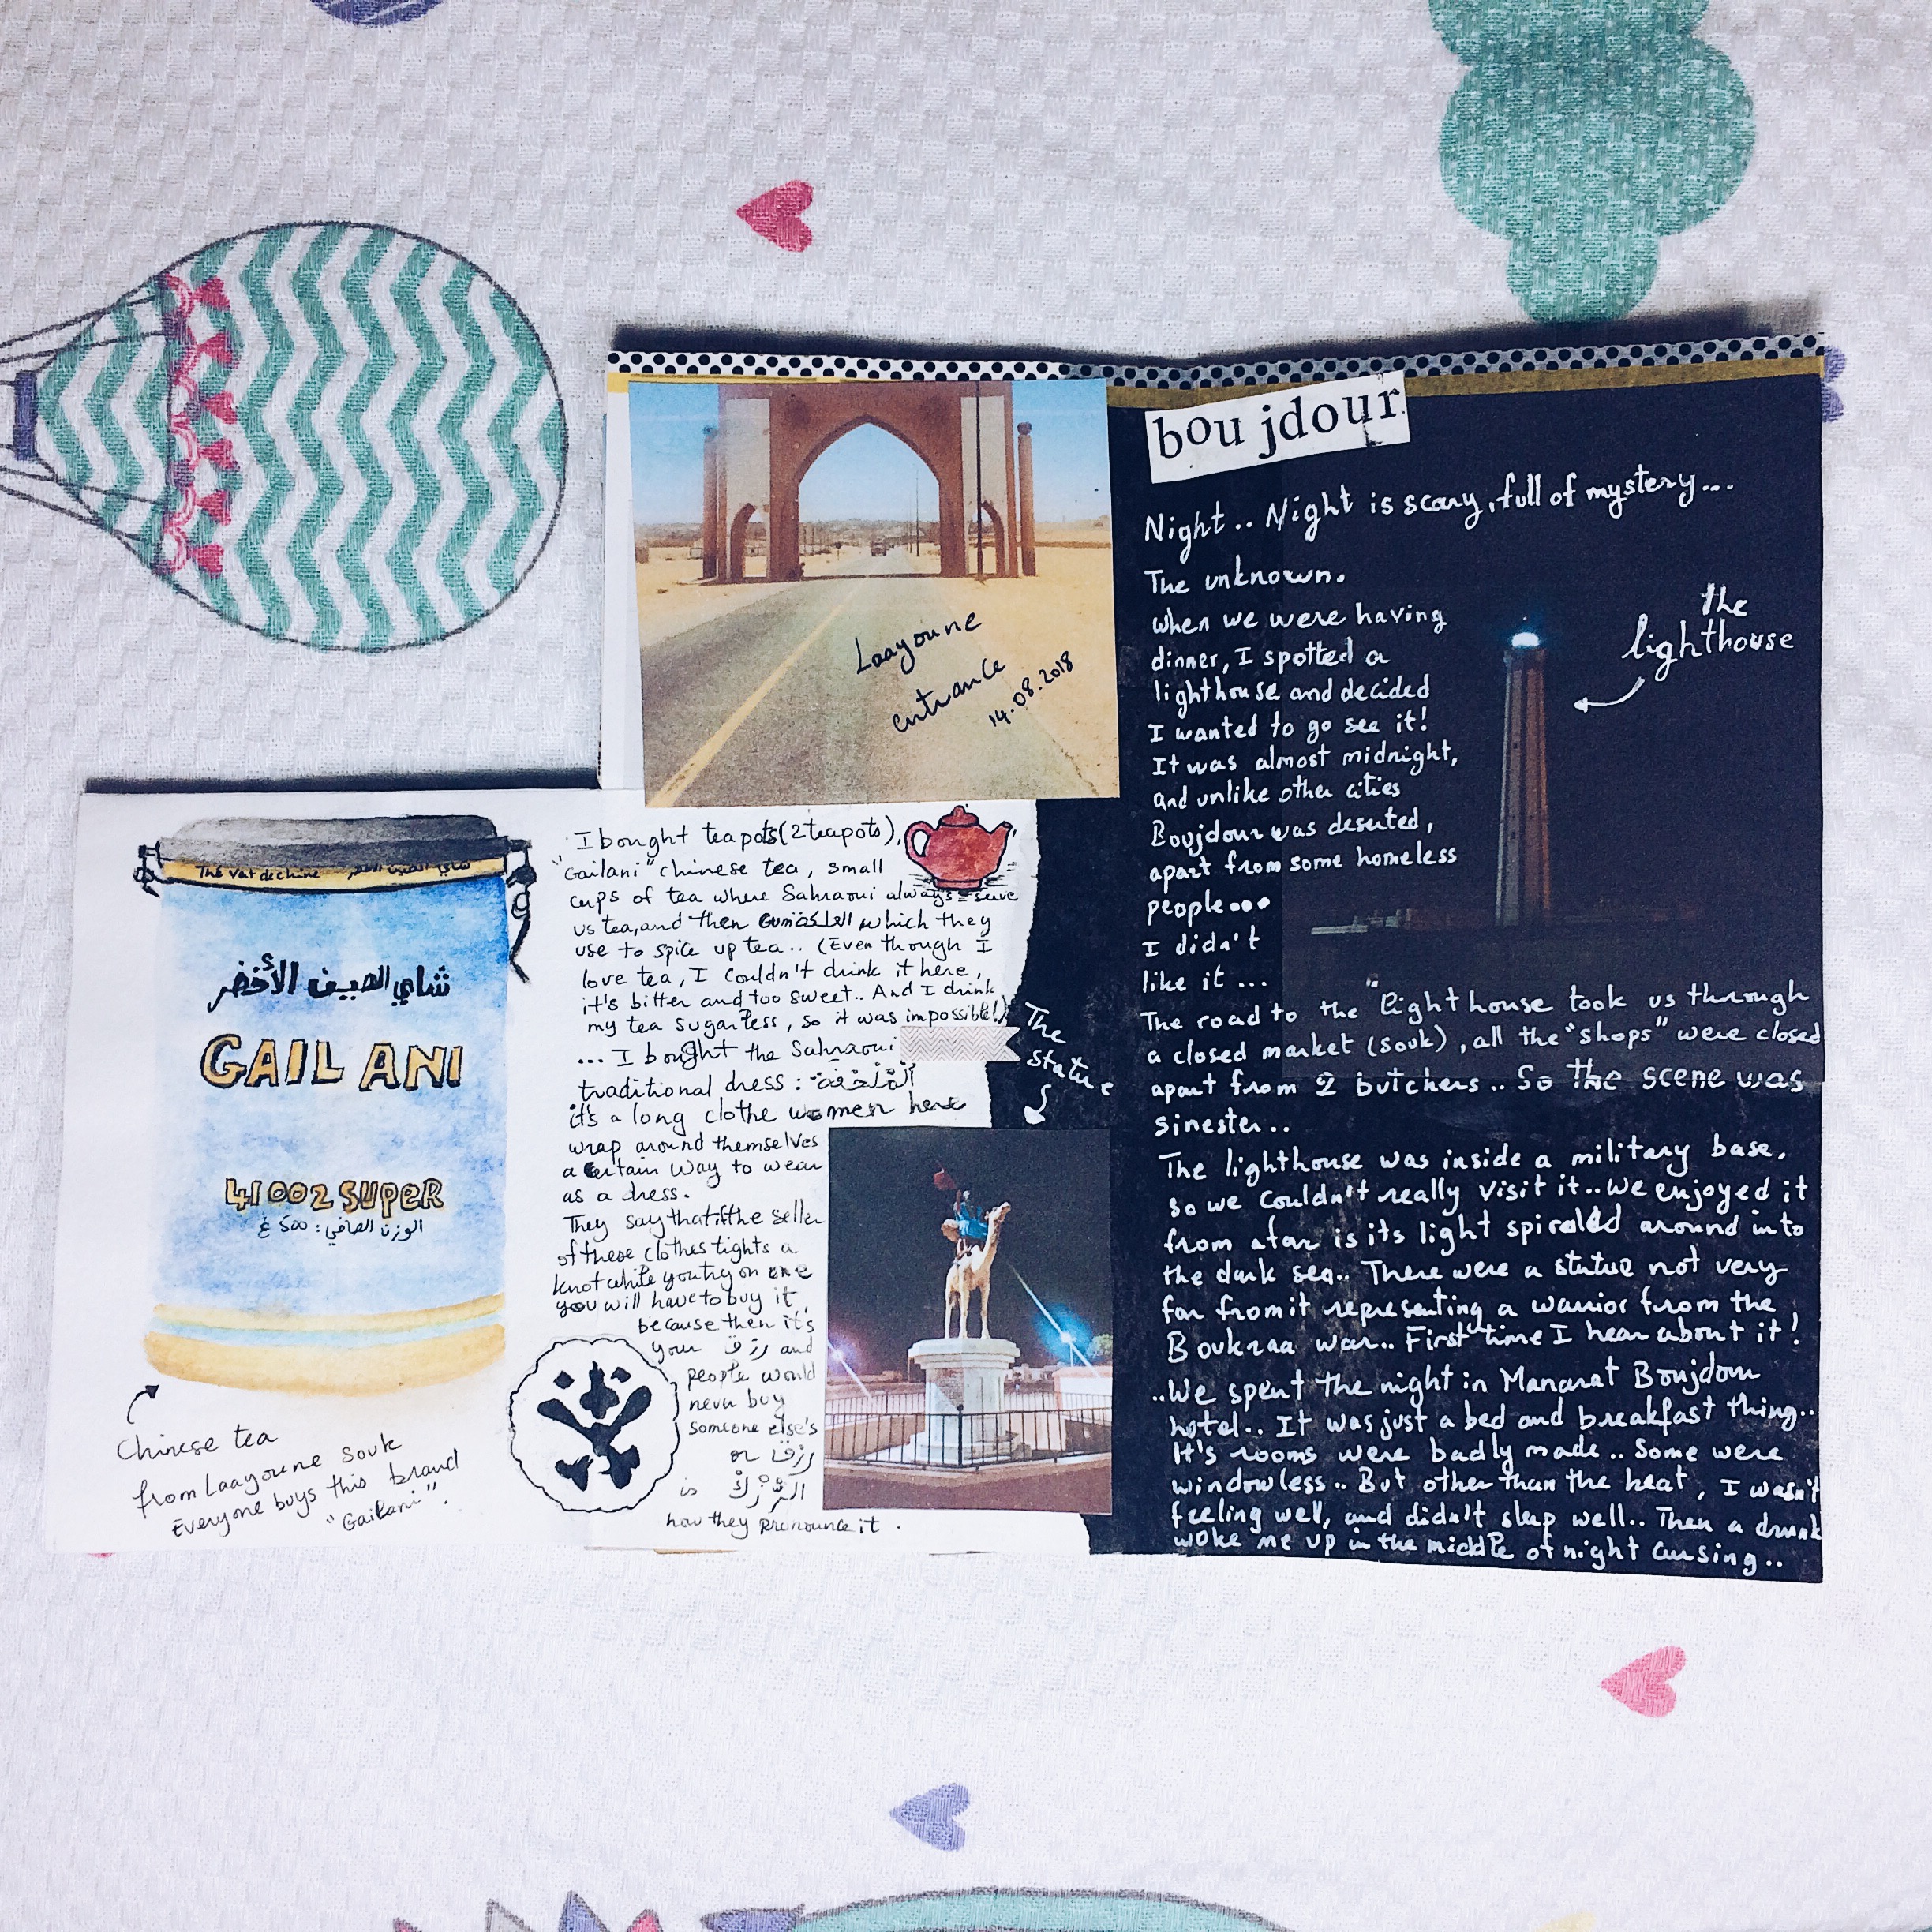 Laayoune
entrance
14.08.2018
Thé vert de chine
شاي الصيف الأخضر
GAILANI
41002 SUPER
الوزن الصافي : 500 غ
Chinese tea
from Laayoune souk
Everyone buys this brand
"Gailani".
I bought teapots (2 teapots),
"Gailani" chinese tea, small
cups of tea where Sahraoui always serve
us tea, and then which they
use to spice up tea.. (Even though I
love tea, I couldn't drink it here,
it's bitter and too sweet.. And I drink
my tea sugarless, so it was impossible!)
... I bought the Sahraoui
traditional dress : الْمَلْحَفَة
it's a long clothe women here
wrap around themselves
a certain way to wear
as a dress.
They say that if the seller
of these clothes tights a
knot while you try on one
you will have to buy it,
because then it's
your رزق and
people would
never buy
someone else's
رزق or
is الرّزْگْ
how they pronounce it .
The
statue
boujdour
Night.. Night is scary, full of mystery...
The unknown.
When we were having
dinner, I spotted a
lighthouse and decided
I wanted to go see it!
It was almost midnight,
and unlike other cities
Boujdour was deserted,
apart from some homeless
people...
I didn't
like it ...
the
lighthouse
The road to the "lighthouse took us through
a closed market (souk), all the "shops" were closed
apart from 2 butchers.. So the scene was
sinester..
The lighthouse was inside a military base,
so we couldn't really visit it.. We enjoyed it
from afar is its light spiraled around into
the dark sea.. There were a statue not very
far from it representing a warrior from the
Boukraa war.. First time I hear about it!
..We spent the night in Manarat Boujdour
hotel.. It was just a bed and breakfast thing..
It's rooms were badly made.. Some were
windowless.. But other than the heat, I wasn't
feeling well, and didn't sleep well.. Then a drunk
woke me up in the middle of night cursing..